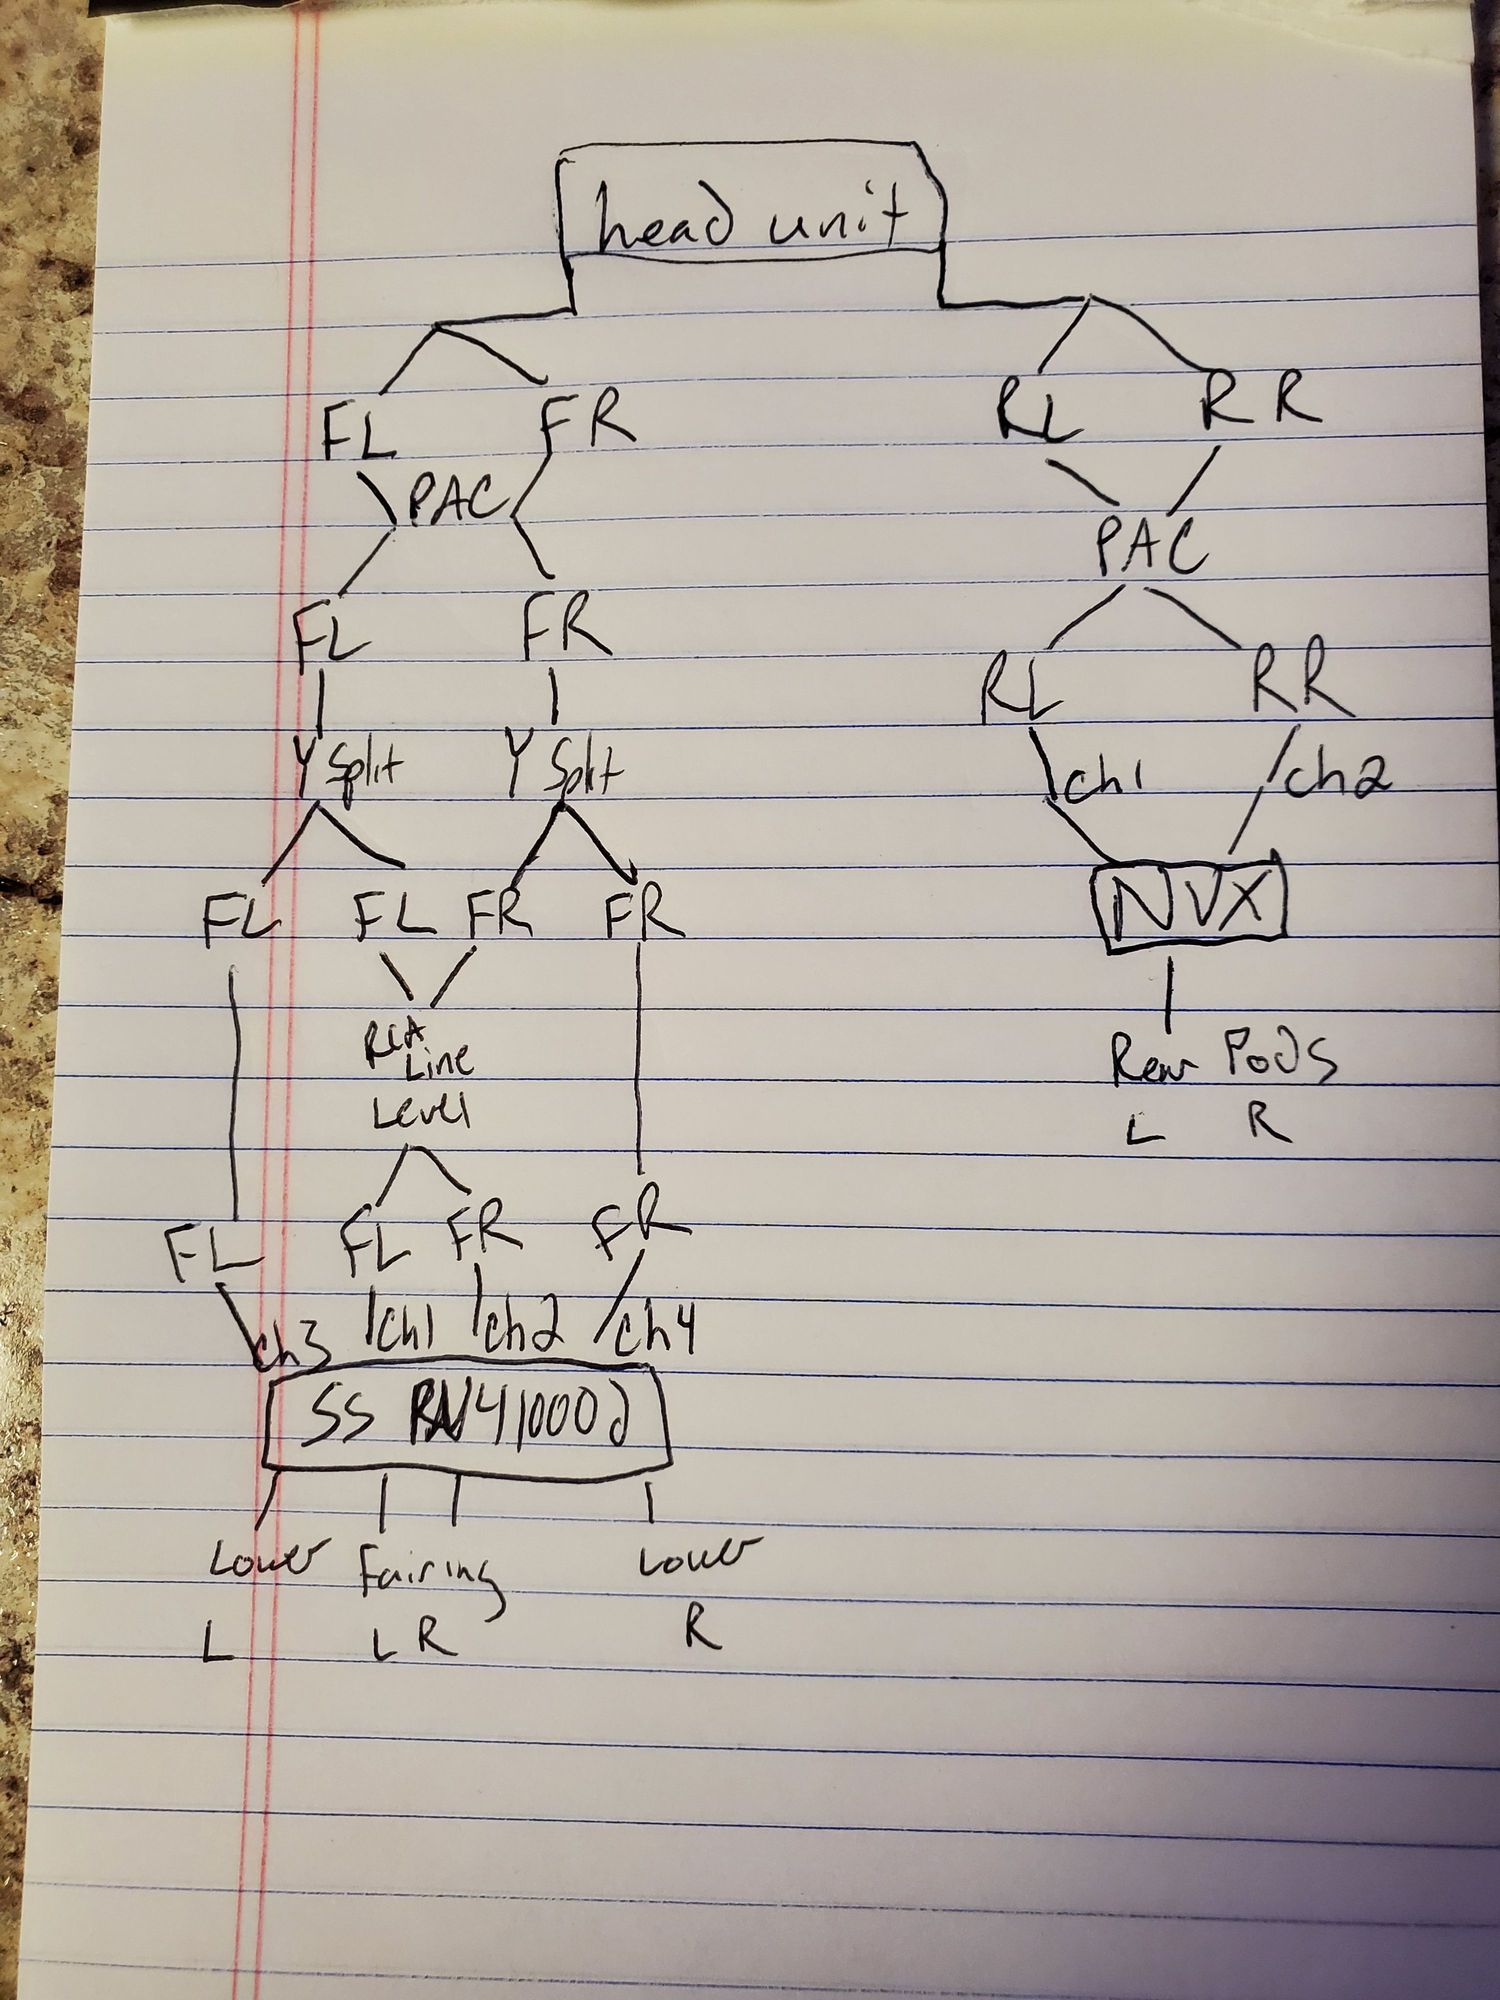 head unit
FL FR RL RR
PAC
PAC
FL FR
RL RR
Y Split Y Split
ch1 ch2
FL FL FR FR
NVX
RCA
Line
Level
Rear Pods
L R
FL FL FR FR
ch3 ch1 ch2 ch4
SS
Lower Fairing Lower
L L R R